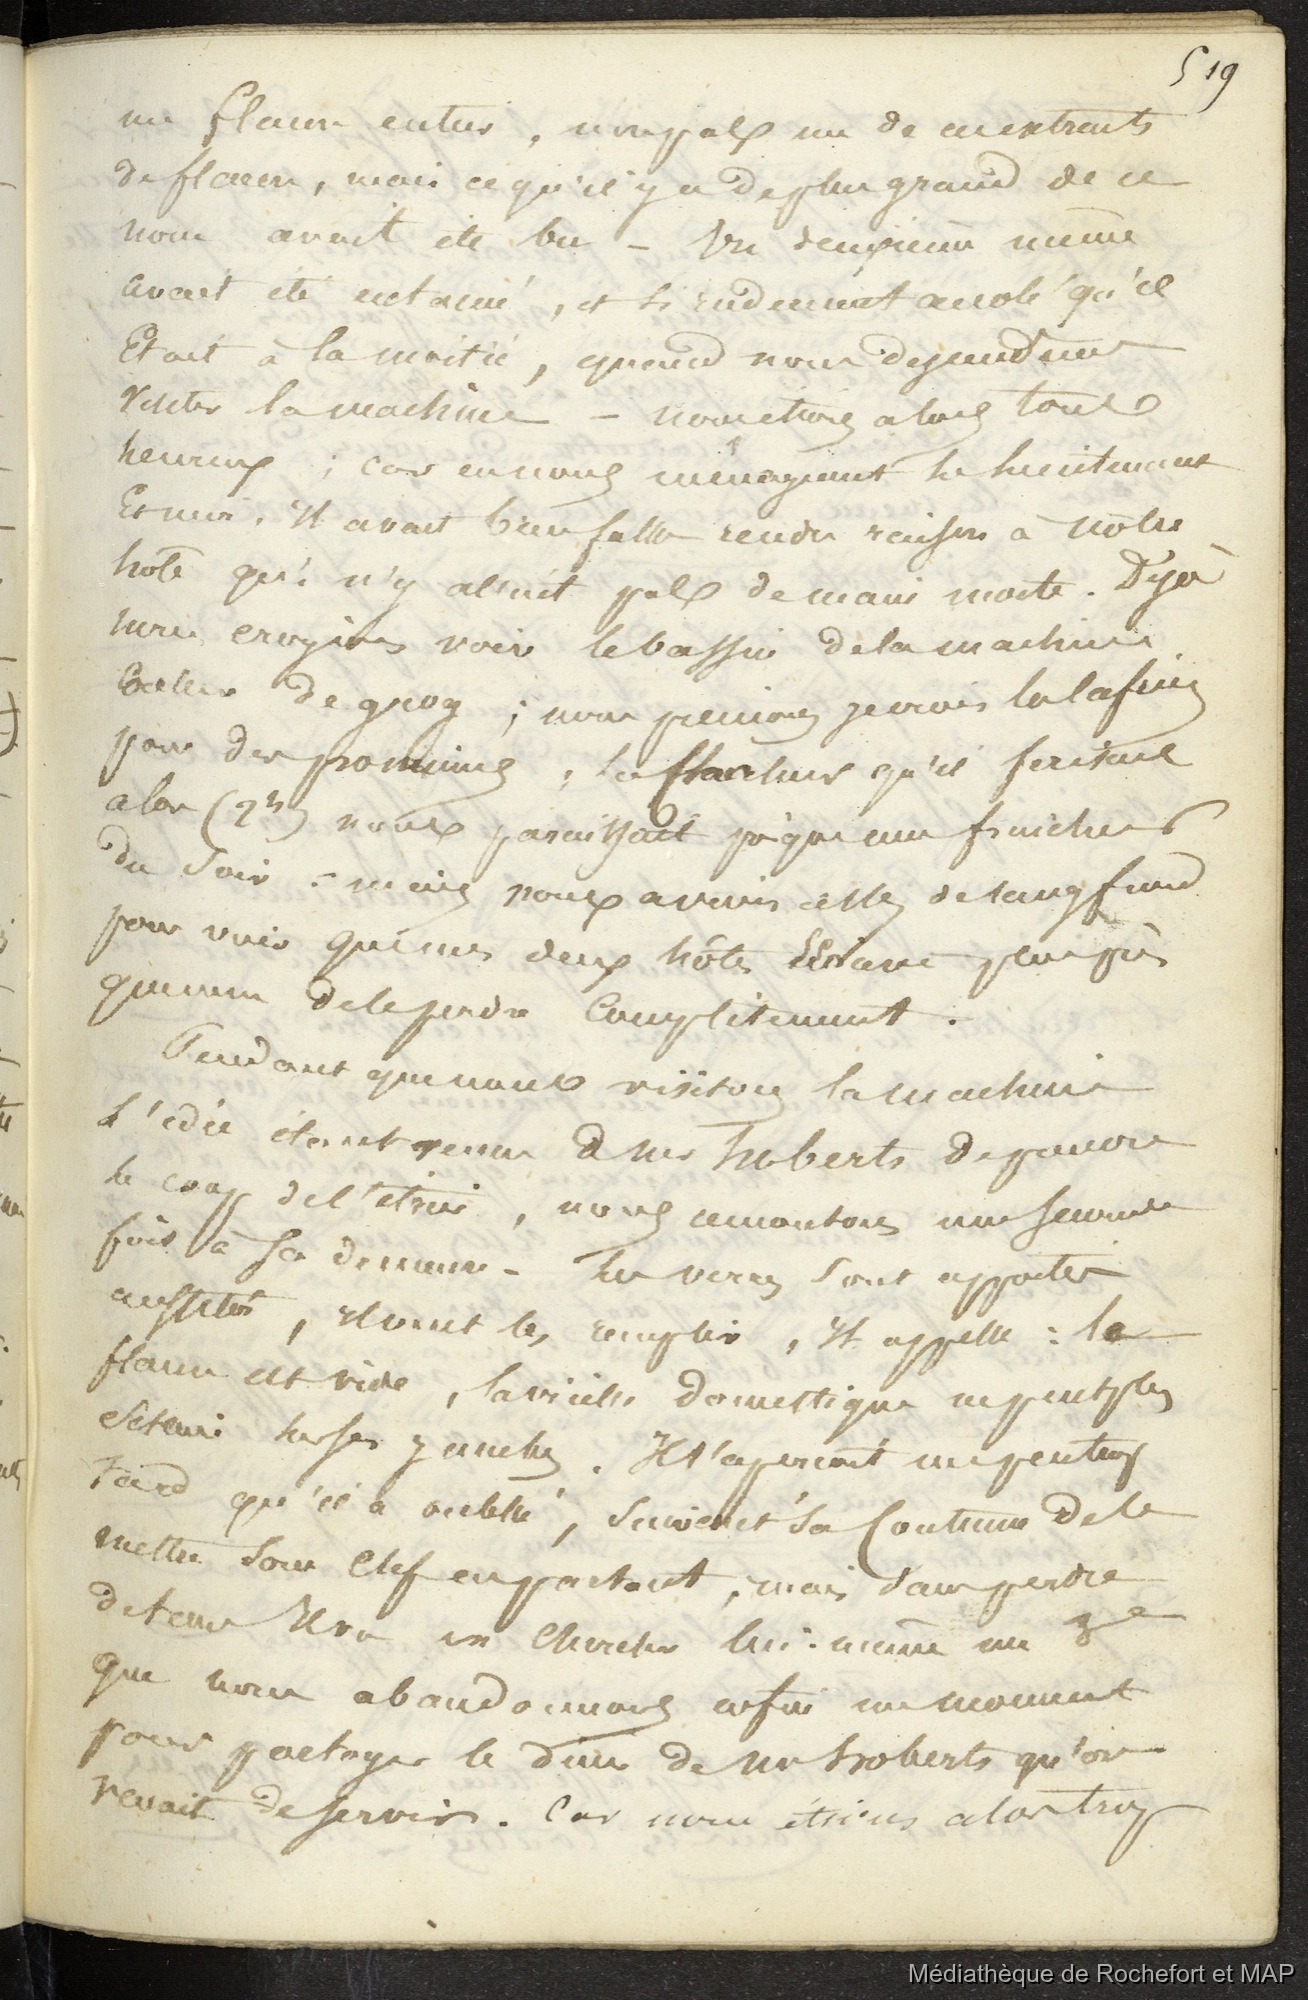 519
un flacon entier, non pas un de ces extraits
de flacon, mais ce qu'il y a de plus grand de ce
nom avait été bu - Un deuxième même
avait été entamé, et si rudement accolé qu'il
Etait à la moitié, quand nous descendîmes
visiter la machine - nous étions alors tous
heureux ; car en nous ménageant le lieutenant
Et moi, il avait bien fallu rendre raison à notre
hôte qui n'y allait pas de main morte. Déjà
nous croyions voir le bassin de la machine
de grog ; nous prenions je crois les lascars
pour des ; la chaleur qu'il faisait
alors (2h) nous paraissait presque une fraicheur
du soir - mais nous avions assez de sang froid
pour voir que nos deux hôtes étaient peu près
que nous de le perdre Complètement.
Pendant que nous visitons la machine
L'idée étant venue à Mr Roberts de prendre
le coup de l'étrier, nous remontons une seconde
fois à sa demeure - les verres sont apportés
aussitôt, il veut les remplir, il appelle : le
flacon est vide, la vieille domestique ne peut plus
se tenir sur ses . Il s'aperçoit un peu trop
tard qu'il a oublié, suivant sa Coutume de le
mettre sous Clef en partant, mais sans perdre
de tems Il va en Chercher lui-même un 3e
que nous abandonnons enfin un moment
pour partager le diner de Mr Roberts qu'on
venait de servir. Car nous étions alors trop
Médiathèque de Rochefort et MAP